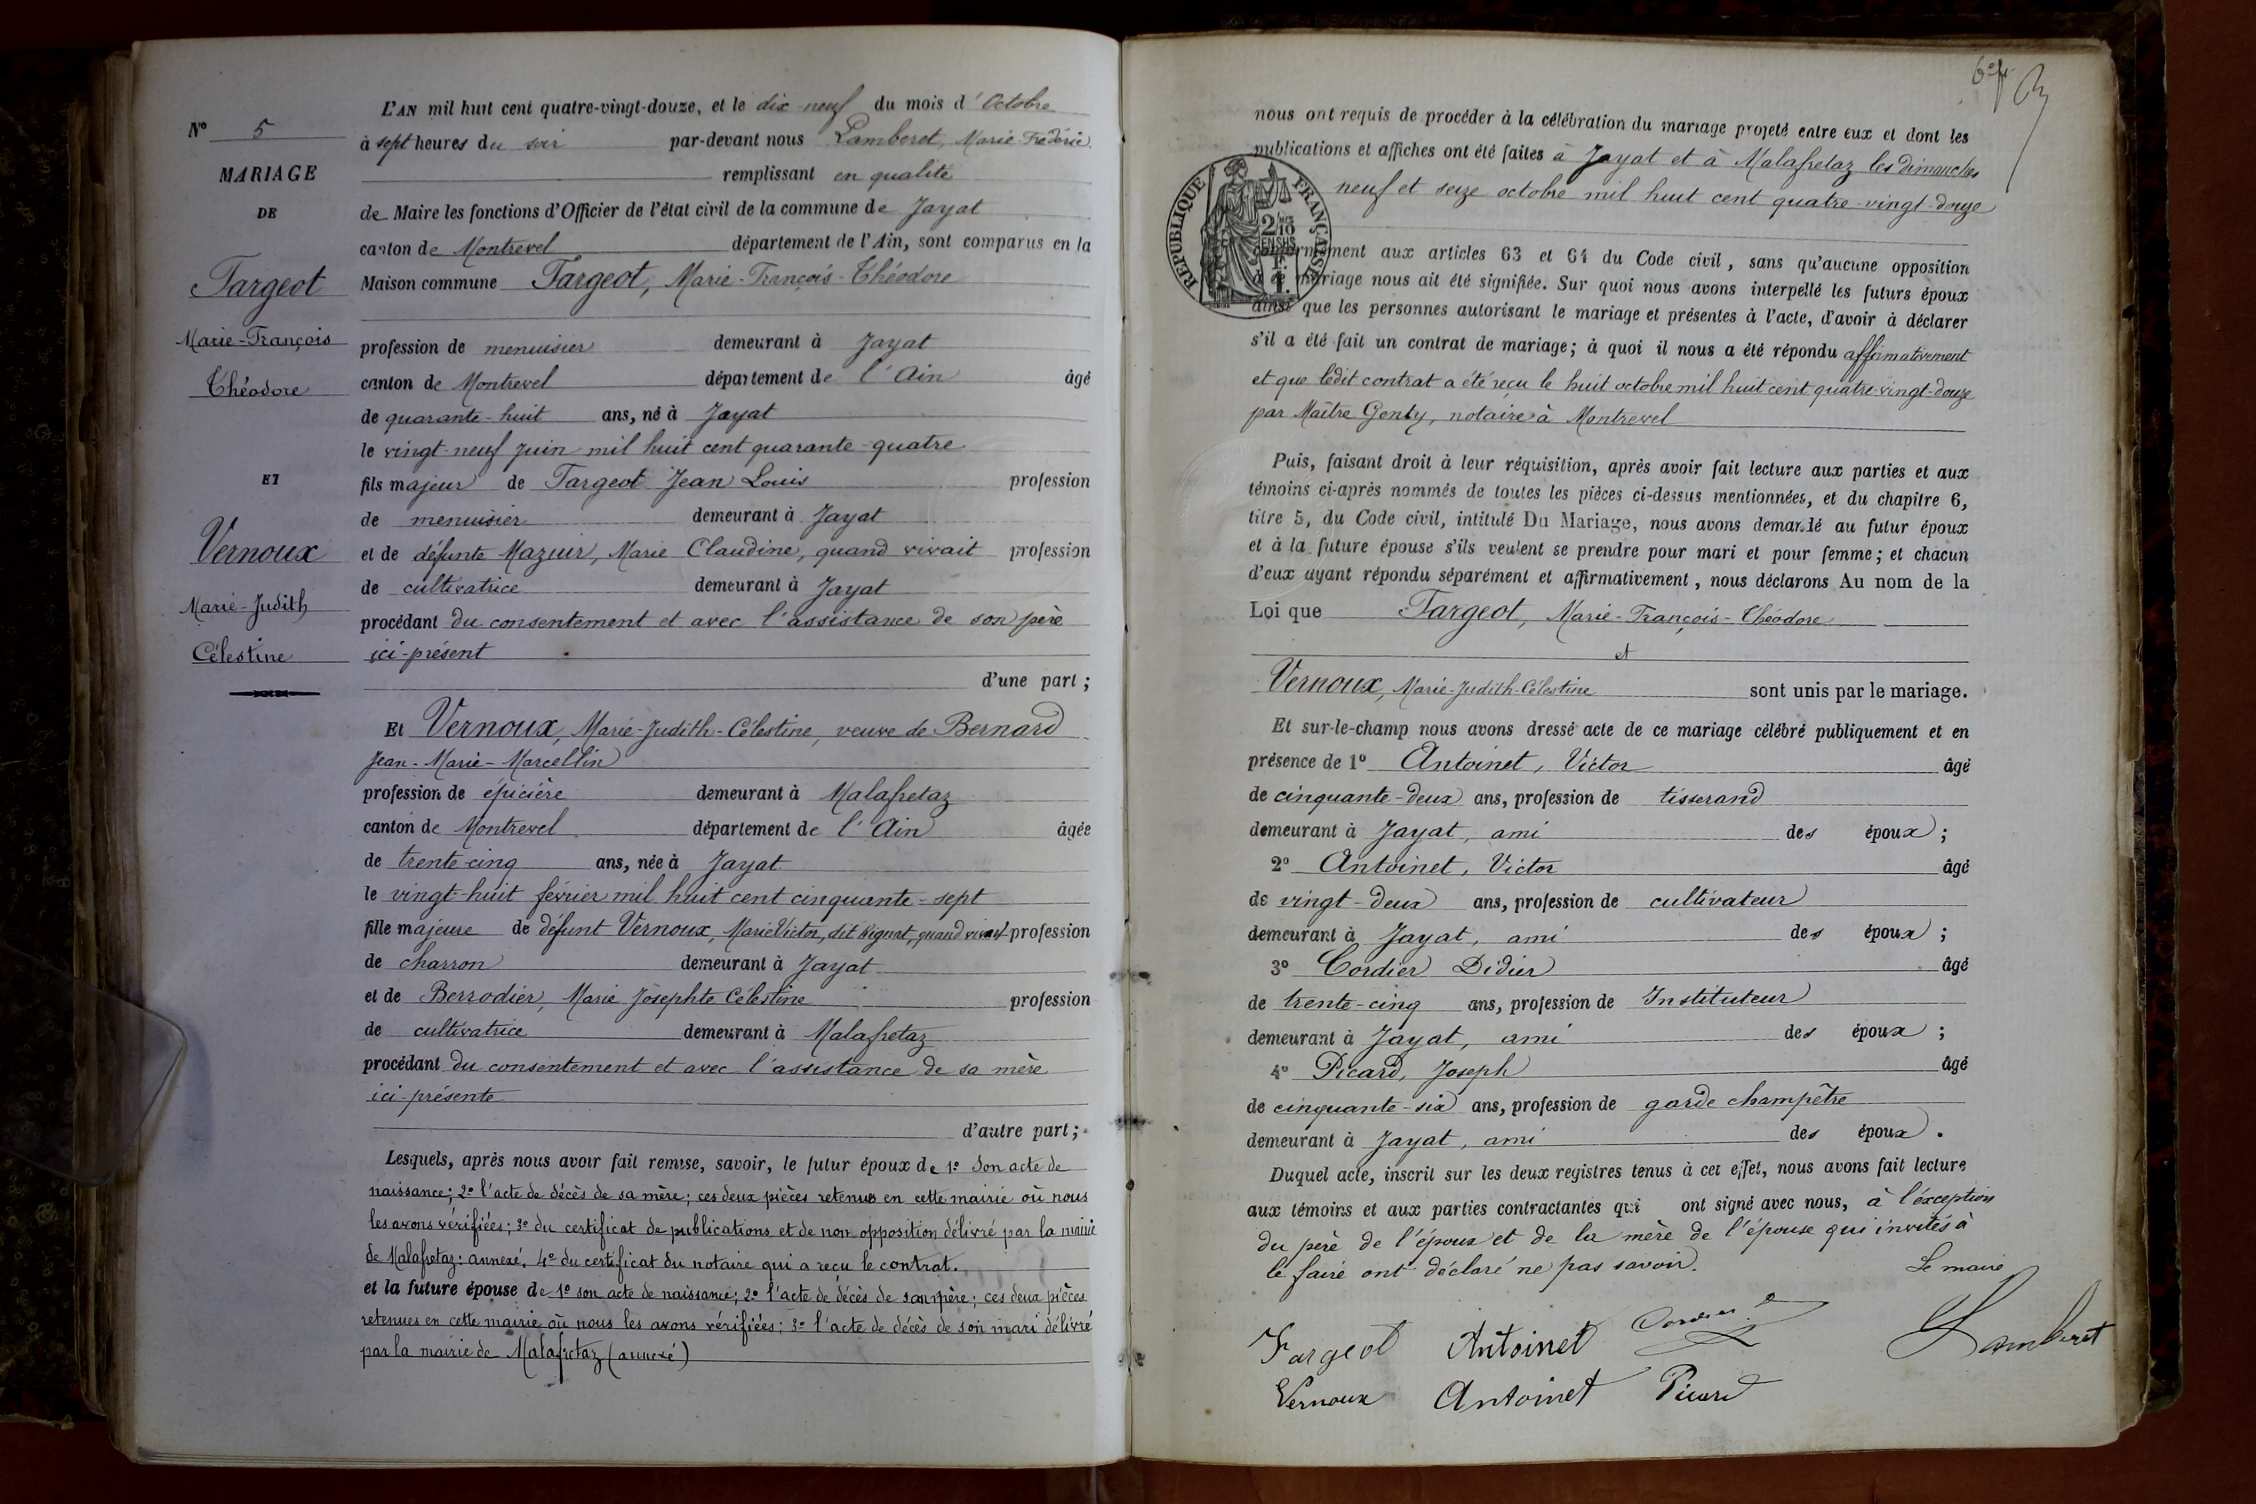 N° 5
MARIAGE
DE
Fargeot
Marie-François
Théodore
ET
Vernoux
Marie-Judith
Célestine
L'AN mil huit cent quatre-vingt-douze, et le dix-neuf du mois d'Octobre
à sept heures du soir par-devant nous Lamberet, Marie-Frédéric
remplissant en qualité
de Maire les fonctions d'Officier de l'état civil de la commune de Jayat
canton de Montrevel département de l'Ain, sont comparus en la
Maison commune Fargeot, Marie-François-Théodore
profession de menuisier demeurant à Jayat
canton de Montrevel département de l'Ain âgé
de quarante-huit ans, né à Jayat
le vingt-neuf juin mil huit cent quarante-quatre
fils majeur de Fargeot Jean Louis profession
de menuisier demeurant à Jayat
et de défunte Mazuir, Marie Claudine, quand vivait profession
de cultivatrice demeurant à Jayat
procédant du consentement et avec l'assistance de son père
ici-présent
d'une part ;
Et Vernoux, Marie-Judith-Célestine, veuve de Bernard
Jean-Marie-Marcellin
profession de épicière demeurant à Malafretaz
canton de Montrevel département de l'Ain âgée
de trente-cinq ans, née à Jayat
le vingt-huit février mil huit cent cinquante-sept
fille majeure de défunt Vernoux, Marie Victor, dit quand vivait profession
de charron demeurant à Jayat
et de Berrodier, Marie Josephte Célestine profession
de cultivatrice demeurant à Malafretaz
procédant du consentement et avec l'assistance de sa mère
ici-présente
d'autre part ;
Lesquels, après nous avoir fait remise, savoir, le futur époux de 1° Son acte de
naissance; 2° l'acte de décès de sa mère; ces deux pièces retenues en cette mairie où nous
les avons vérifiées; 3° du certificat de publications et de non opposition délivré par la mairie
de Malafretaz: annexé. 4° du certificat du notaire qui a reçu le contrat.
et la future épouse de 1° son acte de naissance; 2° l'acte de décès de son père; ces deux pièces
retenues en cette mairie où nous les avons vérifiées; 3° l'acte de décès de son mari délivré
par la mairie de Malafretaz (annexé)
nous ont requis de procéder à la célébration du mariage projeté entre eux et dont les
publications et affiches ont été faites à Jayat et à Malafretaz les dimanches
neuf et seize octobre mil huit cent quatre-vingt-douze
RÉPUBLIQUE FRANÇAISE
conformément aux articles 63 et 64 du Code civil, sans qu'aucune opposition
à ce mariage nous ait été signifiée. Sur quoi nous avons interpellé les futurs époux
ainsi que les personnes autorisant le mariage et présentes à l'acte, d'avoir à déclarer
s'il a été fait un contrat de mariage; à quoi il nous a été répondu affirmativement
et que ledit contrat a été reçu le huit octobre mil huit cent quatre-vingt-douze
par Maître Genty, notaire à Montrevel
Puis, faisant droit à leur réquisition, après avoir fait lecture aux parties et aux
témoins ci-après nommés de toutes les pièces ci-dessus mentionnées, et du chapitre 6,
titre 5, du Code civil, intitulé Du Mariage, nous avons demandé au futur époux
et à la future épouse s'ils veulent se prendre pour mari et pour femme; et chacun
d'eux ayant répondu séparément et affirmativement, nous déclarons Au nom de la
Loi que Fargeot, Marie-François-Théodore
et
Vernoux, Marie-Judith-Célestine sont unis par le mariage.
Et sur-le-champ nous avons dressé acte de ce mariage célébré publiquement et en
présence de 1° Antoinet, Victor âgé
de cinquante-deux ans, profession de tisserand
demeurant à Jayat, ami des époux ;
2° Antoinet, Victor âgé
de vingt-deux ans, profession de cultivateur
demeurant à Jayat, ami des époux ;
3° Cordier Didier âgé
de trente-cinq ans, profession de Instituteur
demeurant à Jayat, ami des époux ;
4° Picard, Joseph âgé
de cinquante-six ans, profession de garde champêtre
demeurant à Jayat, ami des époux.
Duquel acte, inscrit sur les deux registres tenus à cet effet, nous avons fait lecture
aux témoins et aux parties contractantes qui ont signé avec nous, à l'exception
du père de l'époux et de la mère de l'épouse qui invités à
le faire ont déclaré ne pas savoir. Le maire
Fargeot Antoinet Cordier Lamberet
Vernoux Antoinet Picard